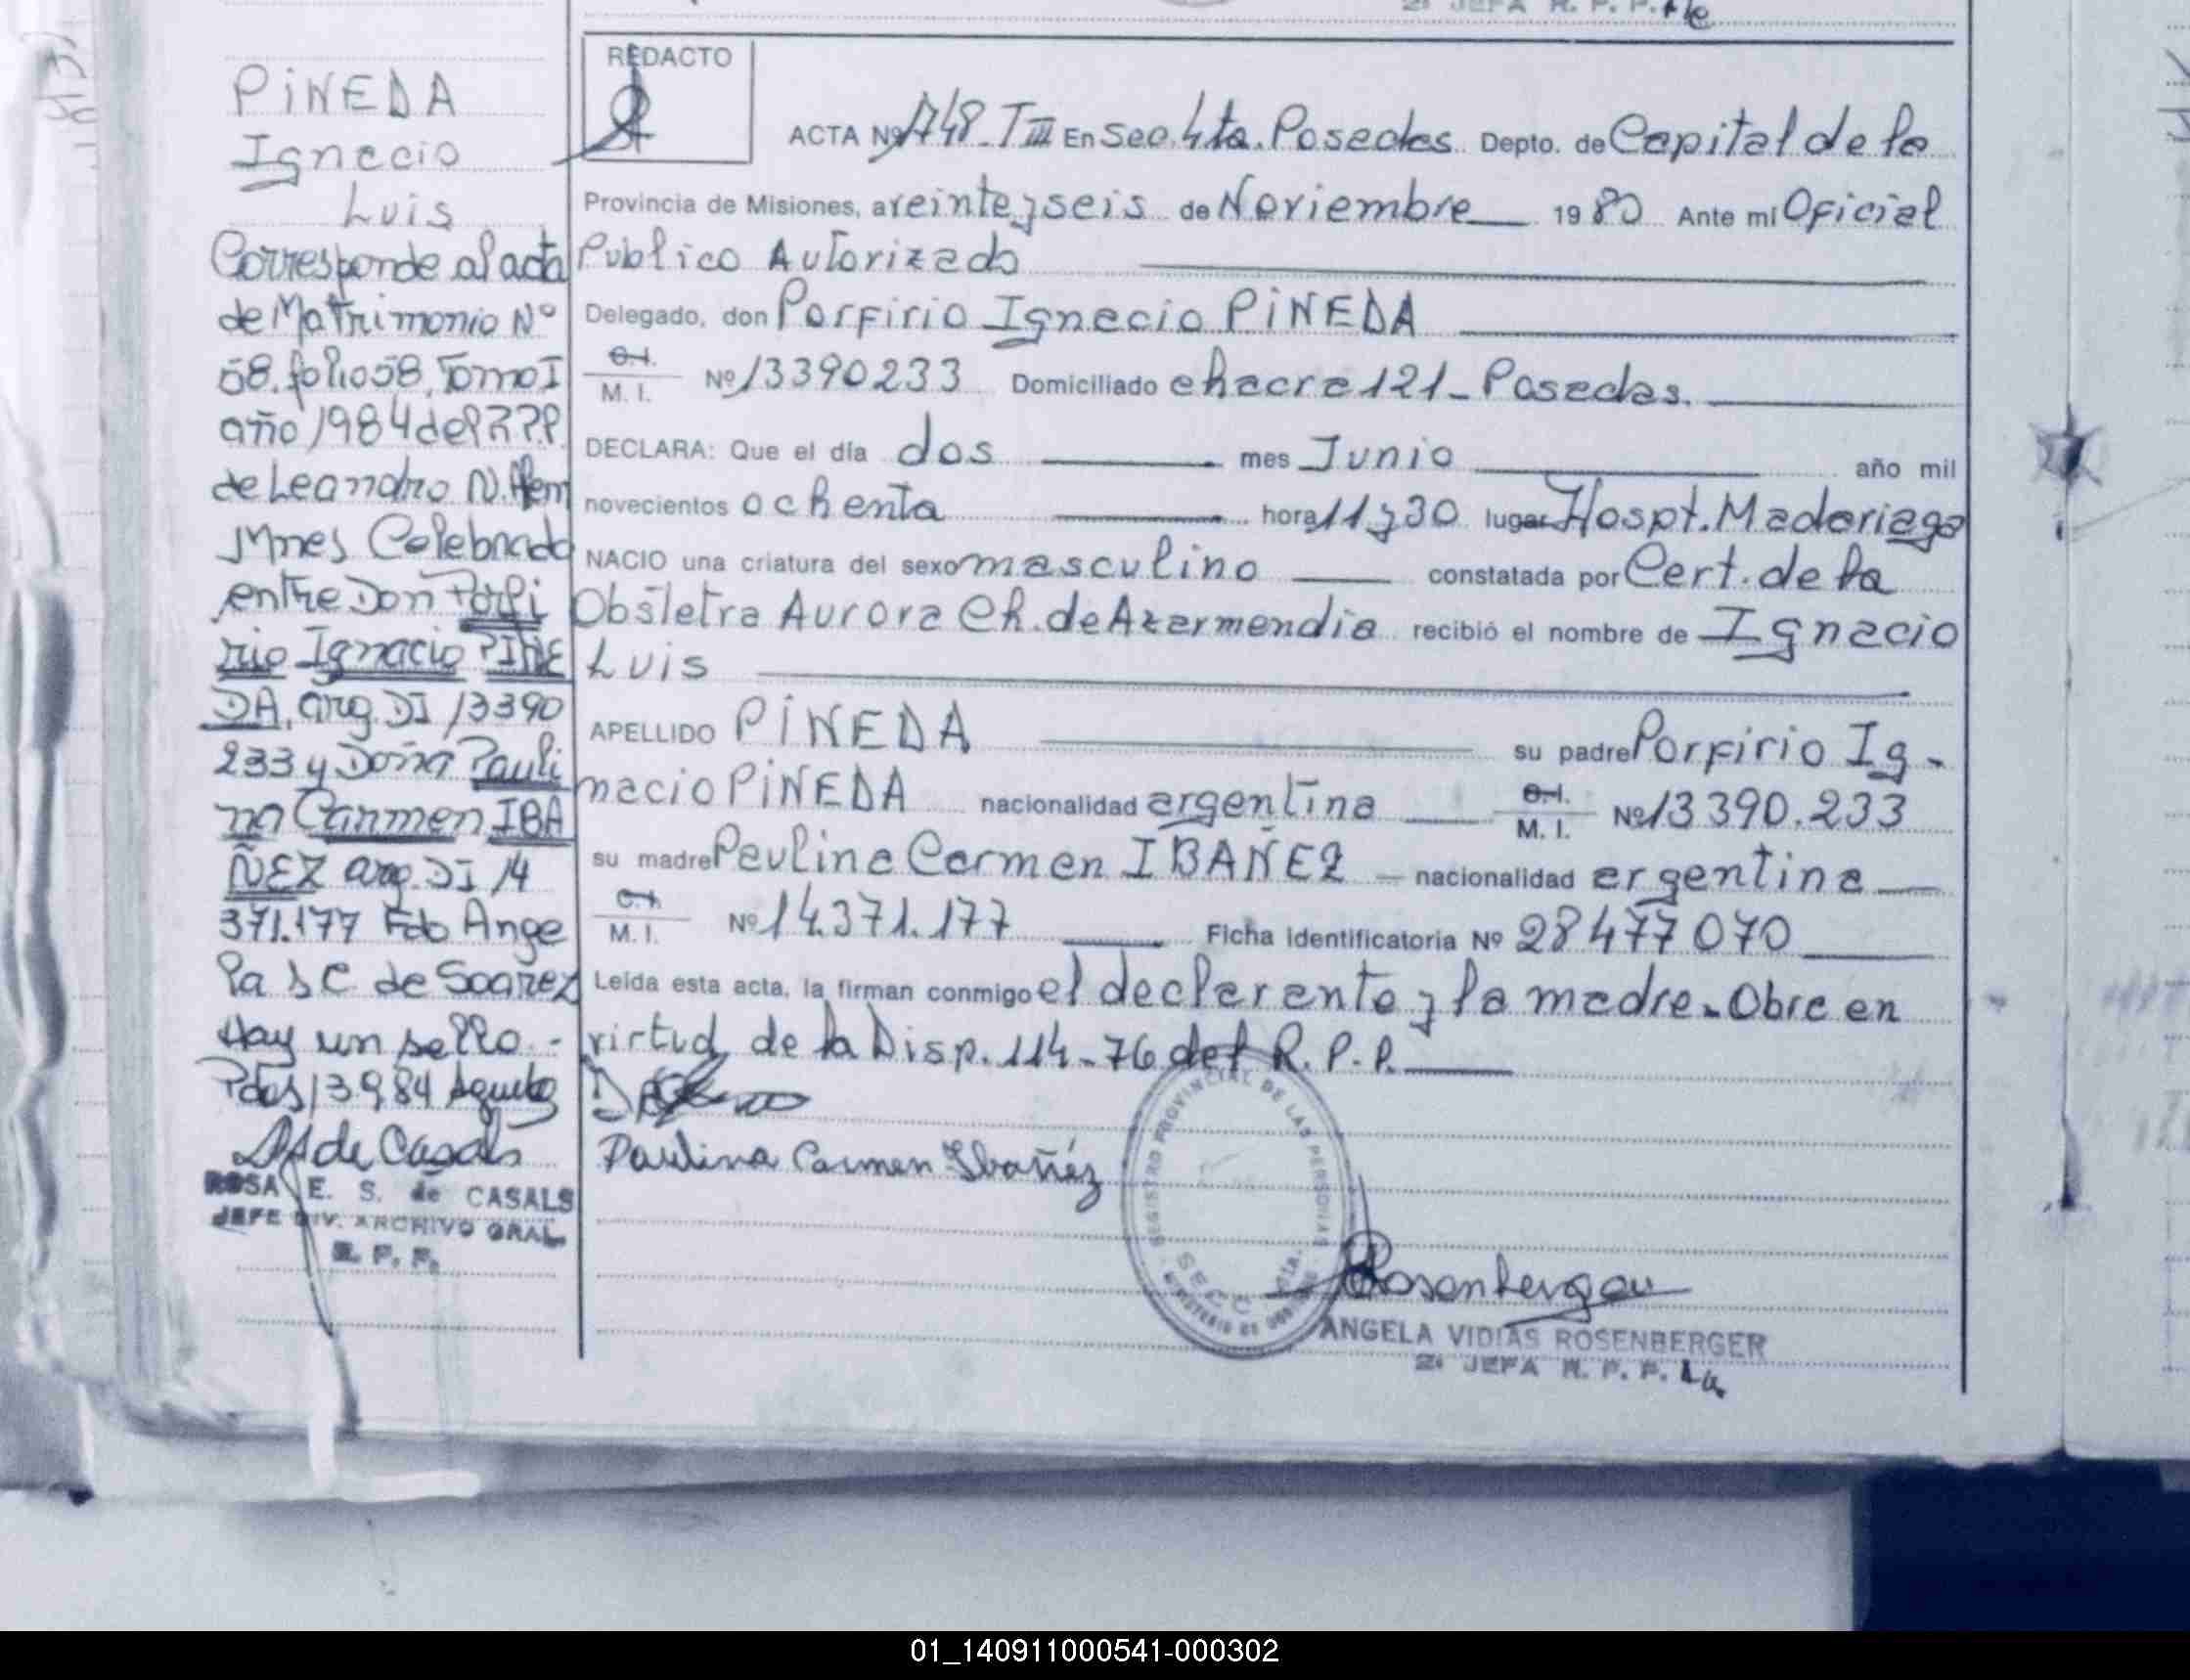 PIÑEDA
Ignacio
Luis
Corresponde al acta
de Matrimonio Nº
58. folio 58, Tomo I
año 1984 del R.P.P.
de Leandro N. Alem
Mnes Celebrado
entre Don Porfi
rio Ignacio PIÑE
DA, arg. DI 13390
233 y Doña Pauli
na Carmen IBA
ÑEZ arg. DI 14
371.177 Fdo Ange
la S C de Soarez
Hay un sello.-
Pdas 13 9 84
de Casals
ROSA E. S. de CASALS
JEFE DIV. ARCHIVO GRAL
R. P. P.
2ª JEFA R. P. P.
REDACTO
ACTA Nº 1748-T III En Sec. 4ta. Posadas Depto. de Capital de la
Provincia de Misiones, a veinte y seis de Noviembre 1980 Ante mí Oficial
Publico Autorizado
Delegado, don Porfirio Ignacio PIÑEDA
C.I.
M. I. Nº 13390233 Domiciliado chacra 121 - Posadas.
DECLARA: Que el día dos mes Junio año mil
novecientos ochenta hora 11 y 30 lugar Hospt. Madariaga
NACIO una criatura del sexo masculino constatada por Cert. de la
Obstetra Aurora Ch. de Azarmendia recibió el nombre de Ignacio
Luis
APELLIDO PIÑEDA su padre Porfirio Ig-
nacio PIÑEDA nacionalidad argentina C.I. M. I. Nº 13390.233
su madre Paulina Carmen IBAÑEZ - nacionalidad argentina
C.I.
M. I. Nº 14.371.177 Ficha Identificatoria Nº 28477070
Leída esta acta, la firman conmigo el declarante y la madre. Obra en
virtud de la Disp. 114-76 del R. P. P.
Paulina Carmen Ibañéz
REGISTRO PROVINCIAL DE LAS PERSONAS
SECC. 4TA.
MINISTERIO DE GOBIERNO
ANGELA VIDIAS ROSENBERGER
2ª JEFA R. P. P.
01_140911000541-000302